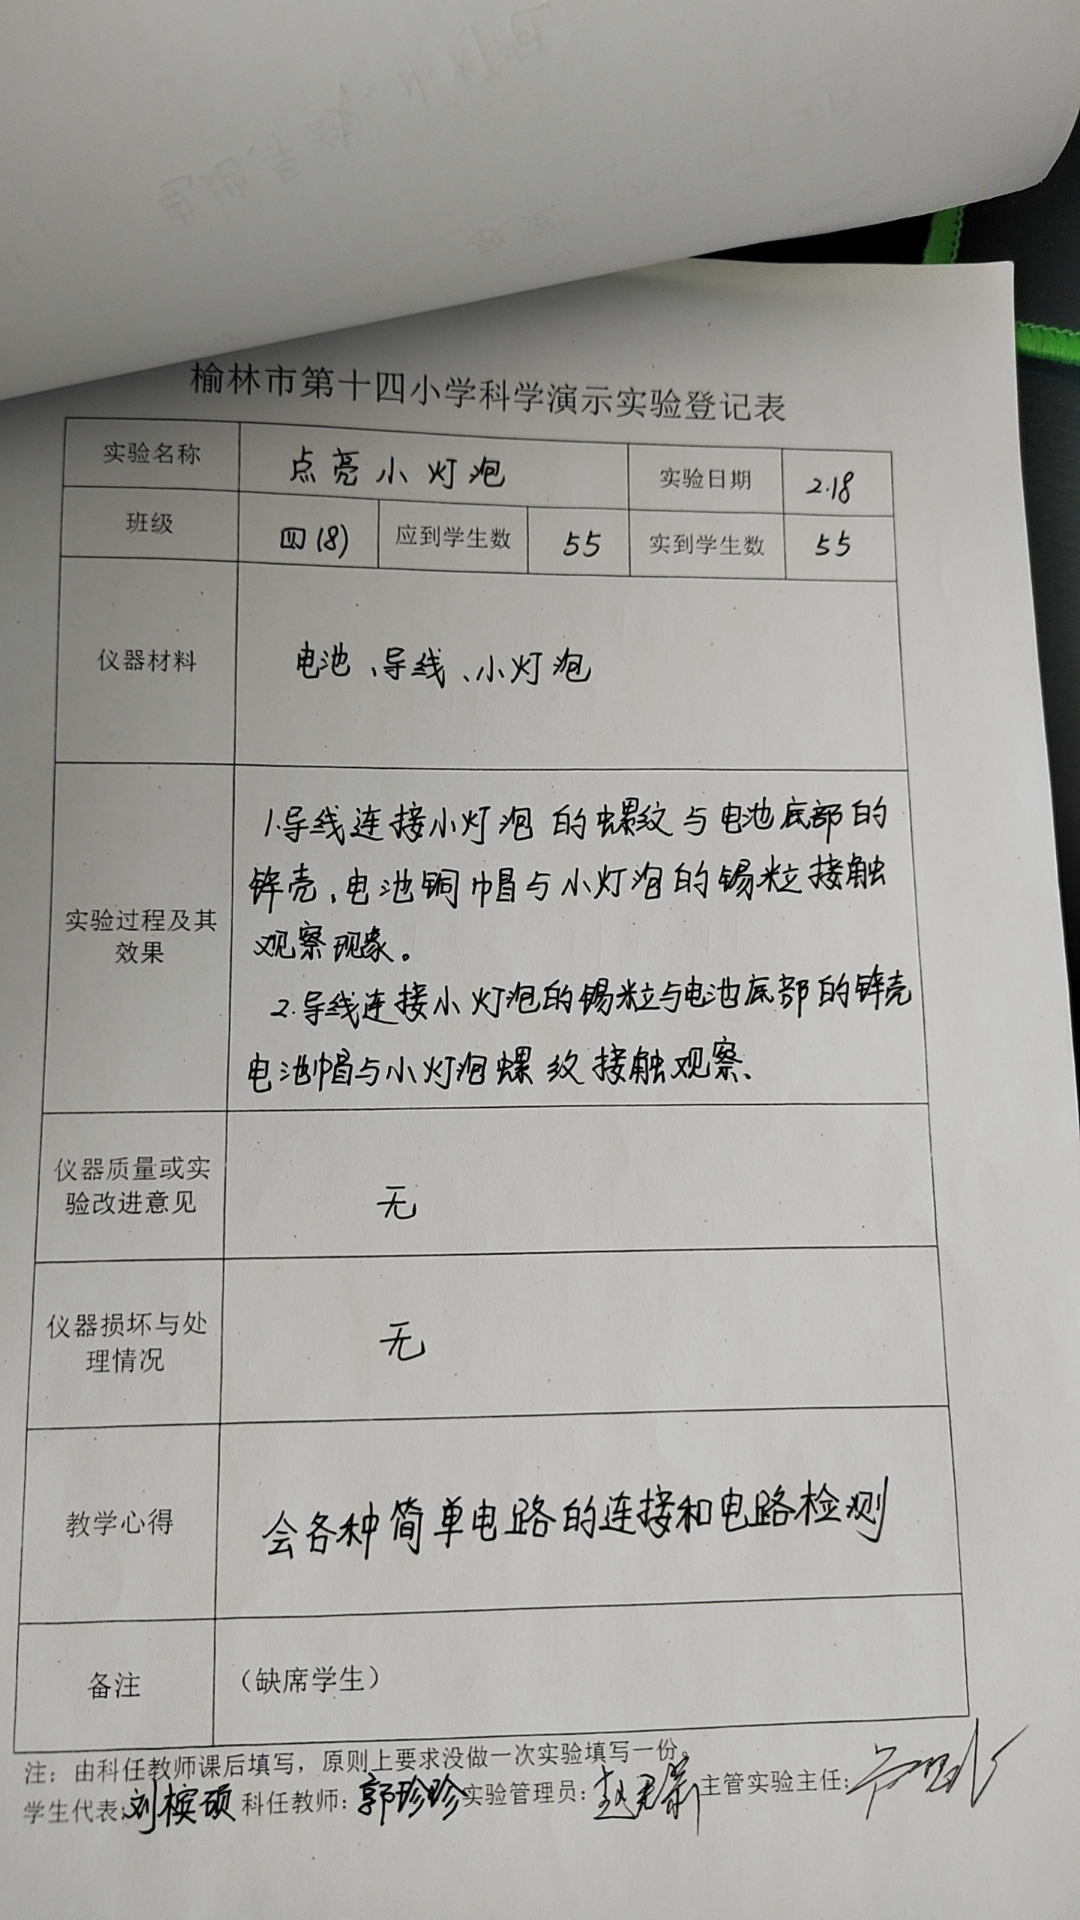 榆林市第十四小学科学演示实验登记表
实验名称 点亮小灯泡 实验日期 2.18
班级 四(8) 应到学生数 55 实到学生数 55
仪器材料 电池、导线、小灯泡
1.导线连接小灯泡的螺纹与电池底部的
锌壳、电池铜帽与小灯泡的锡粒接触
实验过程及其
效果
观察现象。
2.导线连接小灯泡的锡粒与电池底部的锌壳
电池帽与小灯泡螺纹接触观察、
仪器质量或实
验改进意见
无
仪器损坏与处
理情况
无
教学心得 会各种简单电路的连接和电路检测
备注 (缺席学生)
注：由科任教师课后填写，原则上要求没做一次实验填写一份。
学生代表：刘槟硕 科任教师：郭珍珍 实验管理员： 主管实验主任：